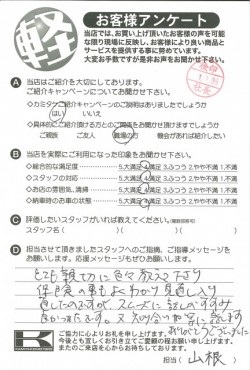 軽
お客様アンケート
当店では、お買い上げ頂いたお客様の声を可能な
限り現場に反映し、お客様により良い商品と
サービスを提供する事に努めています。
大変お手数ですが是非お声をお聞かせ下さい。
A 当店はご紹介を大切にしております。
ご紹介キャンペーンについてお聞かせ下さい。
ご紹介キャンペーンのご説明はありましたでしょうか
はい いいえ
ご親戚 ご友人 職場の方 機会があれば紹介したい
B 当店を実際にご利用になった印象をお聞かせ下さい。
◇総合的な満足度 5.大満足 4.満足 3.ふつう 2.やや不満 1.不満
◇スタッフの対応 5.大満足 4.満足 3.ふつう 2.やや不満 1.不満
◇お店の雰囲気、清掃 5.大満足 4.満足 3.ふつう 2.やや不満 1.不満
◇納車時のお車の状態 5.大満足 4.満足 3.ふつう 2.やや不満 1.不満
C 評価したいスタッフがいれば教えてください。
スタッフ名( )( )( )
D 担当させて頂きましたスタッフへのご指摘、ご指導メッセージを
お願いします。応援メッセージもぜひお願いします。
とても親切に色々教えて下さり
保険の事もよくわかり
スムーズに話しがすすみ
良かったです。
ありがとうございました
ご協力に心よりお礼を申し上げます。
今後とも宜しくお引き立てご愛顧の程お願い申し上げます。
またのご来店を心からお待ちしております。
担当( 山根 )